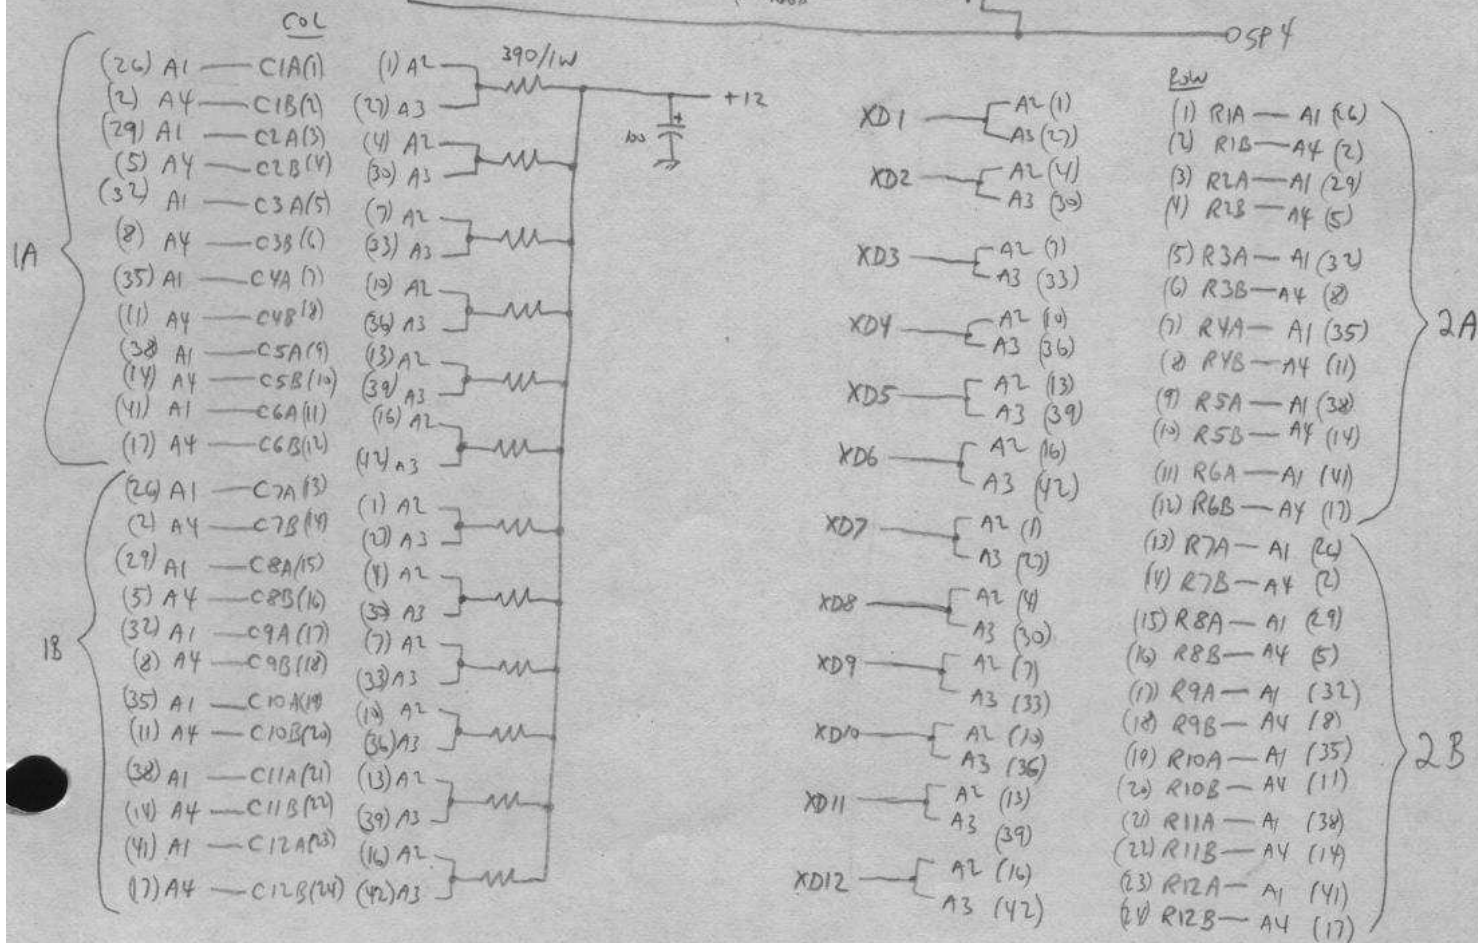 OSP4
COL
390/1W
(26) A1 — C1A(1)
(2) A4 — C1B(2)
(29) A1 — C2A(3)
(5) A4 — C2B(4)
(32) A1 — C3A(5)
(8) A4 — C3B(6)
(35) A1 — C4A(7)
(11) A4 — C4B(8)
(38) A1 — C5A(9)
(14) A4 — C5B(10)
(41) A1 — C6A(11)
(17) A4 — C6B(12)
1A
(26) A1 — C7A(13)
(2) A4 — C7B(14)
(29) A1 — C8A(15)
(5) A4 — C8B(16)
(32) A1 — C9A(17)
(8) A4 — C9B(18)
(35) A1 — C10A(19)
(11) A4 — C10B(20)
(38) A1 — C11A(21)
(14) A4 — C11B(22)
(41) A1 — C12A(23)
(17) A4 — C12B(24)
1B
(1) A2
(27) A3
(4) A2
(30) A3
(7) A2
(33) A3
(10) A2
(36) A3
(13) A2
(39) A3
(16) A2
(42) A3
(1) A2
(27) A3
(4) A2
(30) A3
(7) A2
(33) A3
(10) A2
(36) A3
(13) A2
(39) A3
(16) A2
(42) A3
+12
+
100
XD1 A2 (1)
A3 (27)
XD2 A2 (4)
A3 (30)
XD3 A2 (7)
A3 (33)
XD4 A2 (10)
A3 (36)
XD5 A2 (13)
A3 (39)
XD6 A2 (16)
A3 (42)
XD7 A2 (1)
A3 (27)
XD8 A2 (4)
A3 (30)
XD9 A2 (7)
A3 (33)
XD10 A2 (10)
A3 (36)
XD11 A2 (13)
A3 (39)
XD12 A2 (16)
A3 (42)
ROW
(1) R1A — A1 (26)
(2) R1B — A4 (2)
(3) R2A — A1 (29)
(4) R2B — A4 (5)
(5) R3A — A1 (32)
(6) R3B — A4 (8)
(7) R4A — A1 (35)
(8) R4B — A4 (11)
(9) R5A — A1 (38)
(10) R5B — A4 (14)
(11) R6A — A1 (41)
(12) R6B — A4 (17)
2A
(13) R7A — A1 (26)
(14) R7B — A4 (2)
(15) R8A — A1 (29)
(16) R8B — A4 (5)
(17) R9A — A1 (32)
(18) R9B — A4 (8)
(19) R10A — A1 (35)
(20) R10B — A4 (11)
(21) R11A — A1 (38)
(22) R11B — A4 (14)
(23) R12A — A1 (41)
(24) R12B — A4 (17)
2B